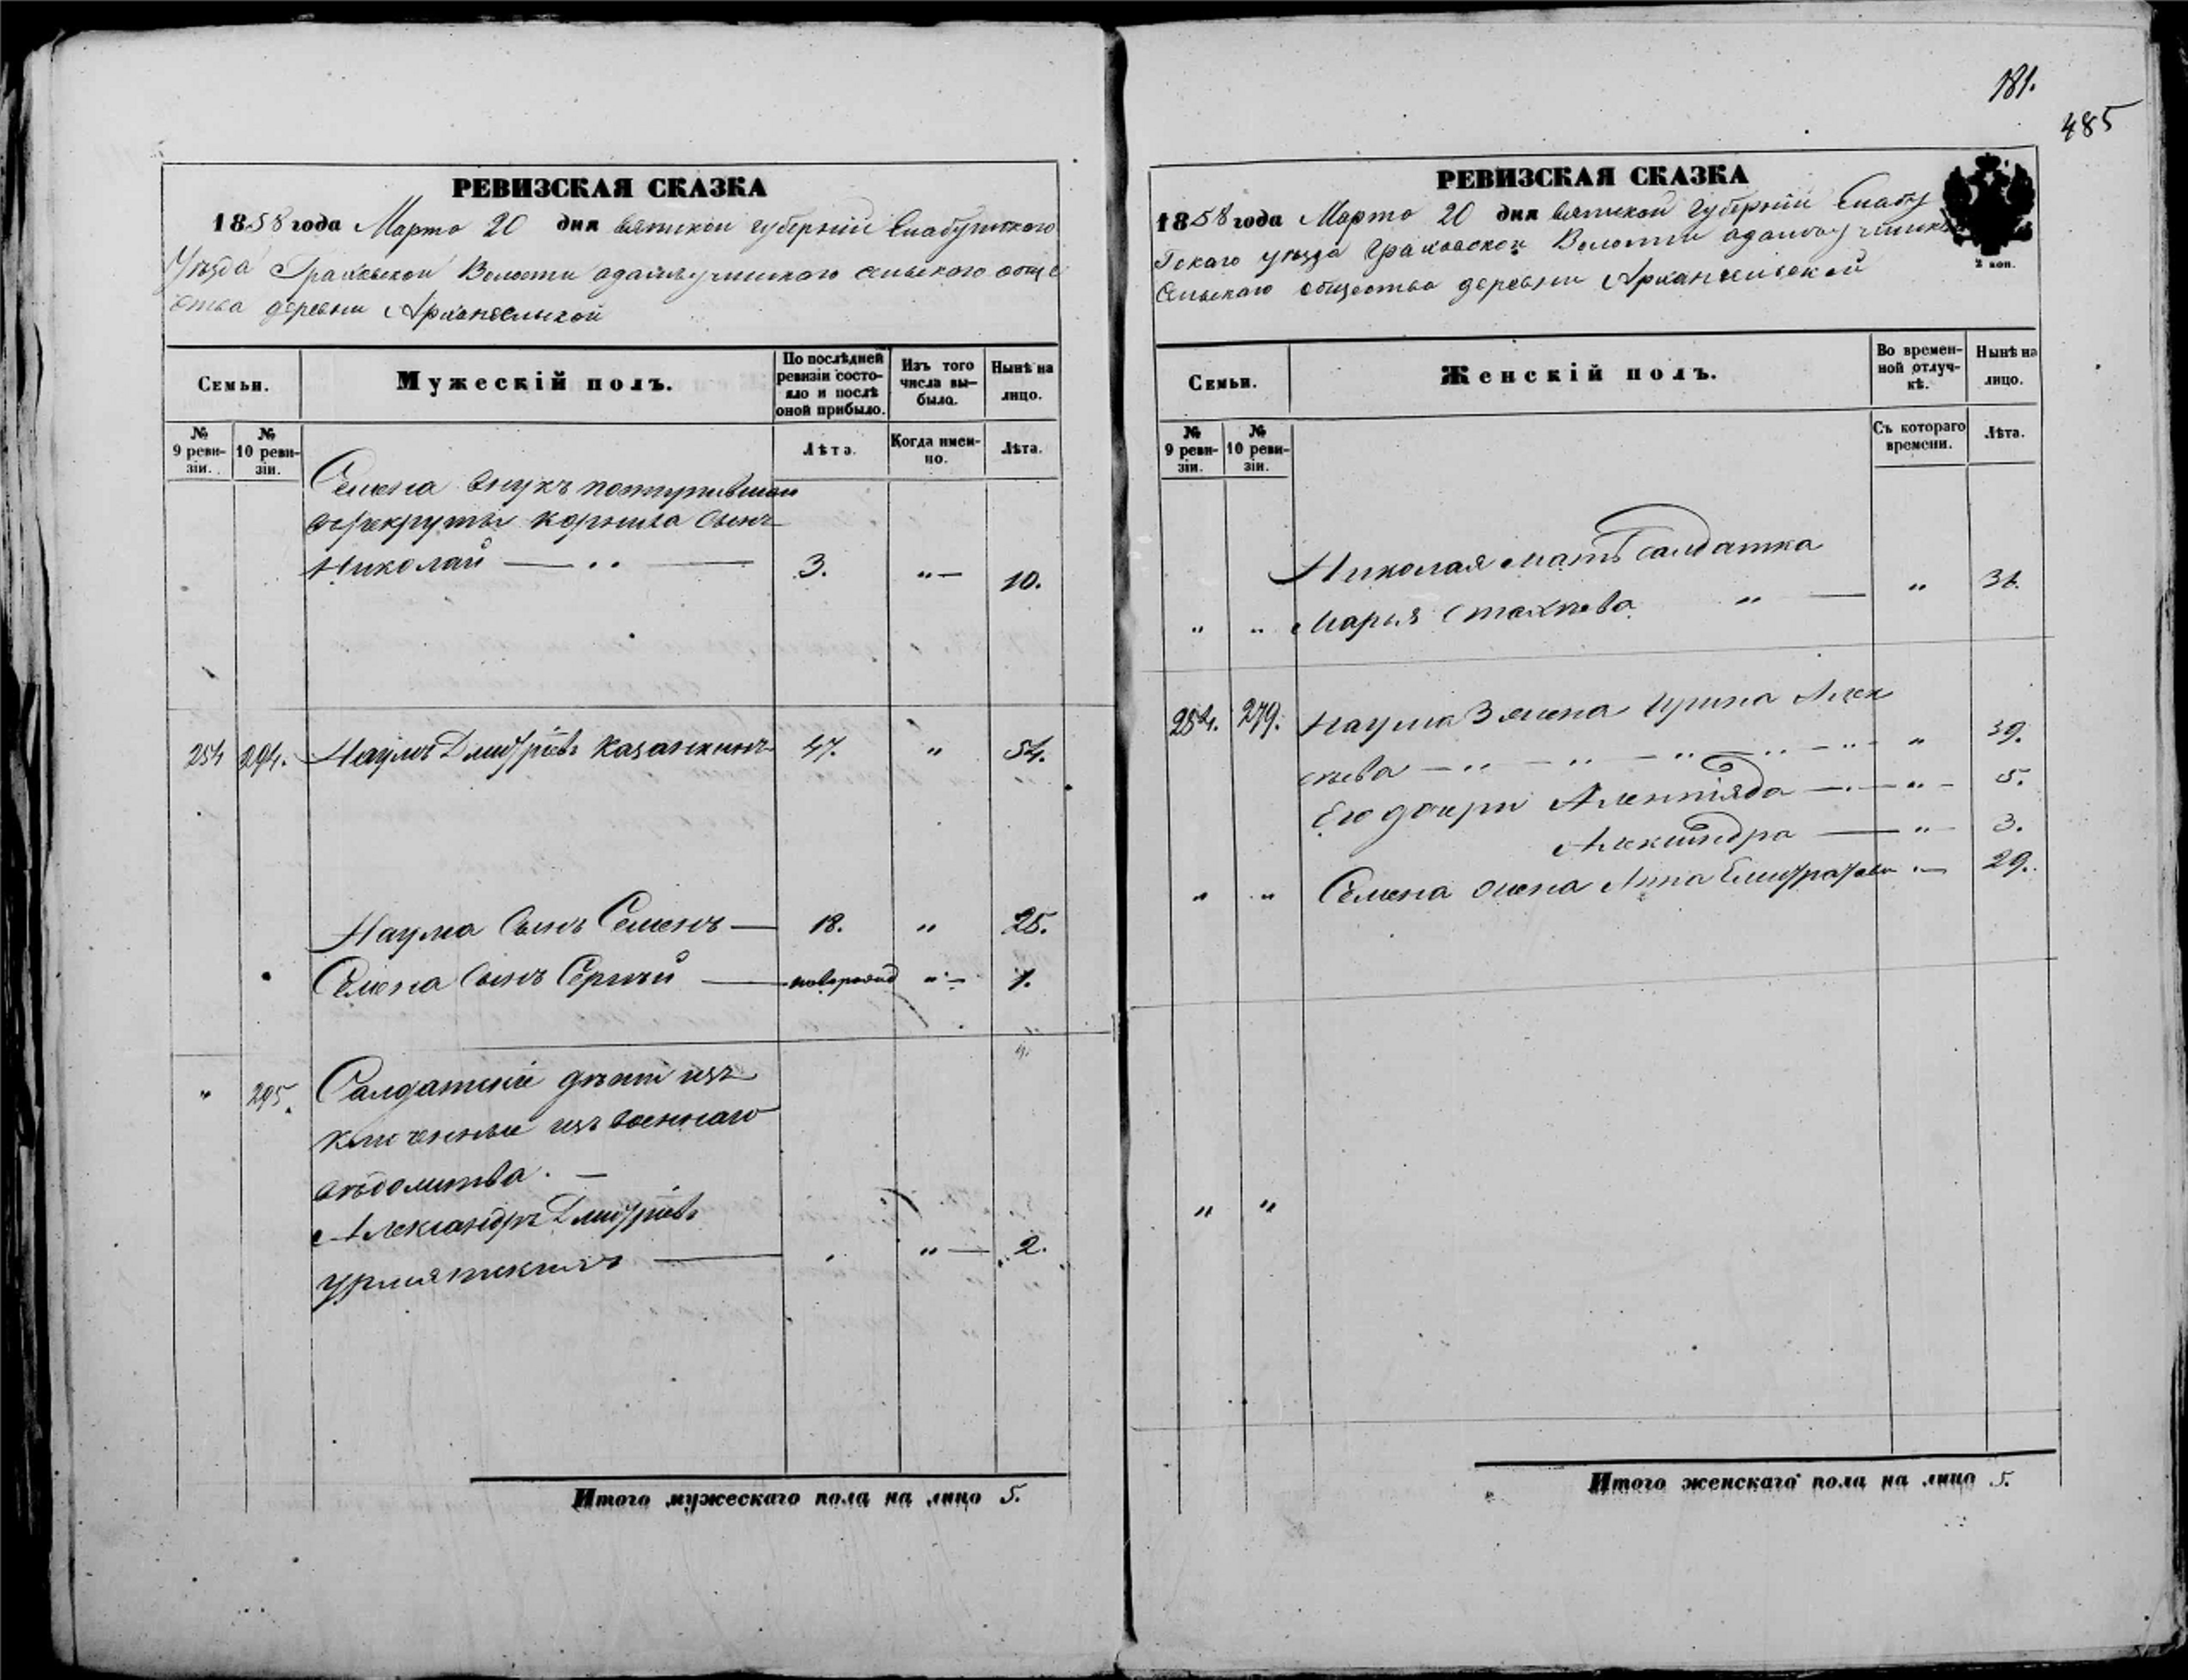 181.
485
РЕВИЗСКАЯ СКАЗКА
1858 года Марта 20 дня Вятской губернии Елабужского
Уѣзда Граховской Волости сельского обще
ства деревни Архангельской
Семьи.
Мужескій полъ.
По послѣдней ревизіи состояло и послѣ оной прибыло.
Изъ того числа выбыло.
Нынѣ на лицо.
№ 9 ревизіи.
№ 10 ревизіи.
Лѣта.
Когда именно.
Лѣта.
Семена внукъ поступившаго
въ рекруты Корнила сынъ
Николай — „ — 3. „ — 10.
254 294. Наумъ Дмитріевъ Казанкинъ 47. „ 54.
Наума сынъ Семенъ — 18. „ 25.
Семена сынъ Сергѣй — новорожд „ — 1.
„ 295. Салдатскіе дѣти изъ
ключенные изъ военнаго
вѣдомства. —
Александръ Дмитріевъ
— „ — 2.
Итого мужескаго пола на лицо 5.
РЕВИЗСКАЯ СКАЗКА
1858 года Марта 20 дня Вятской Губерніи Елабу
уѣзда Граховской Волости
Сельскаго общества деревни Архангельской
2 коп.
Семьи.
Женскій полъ.
Во временной отлучкѣ.
Нынѣ на лицо.
№ 9 ревизіи.
№ 10 ревизіи.
Съ котораго времени.
Лѣта.
Николая мать Салдатка
„ „ Марья „ — „ 31.
254. 279. Наума жена Ирина Алек
сѣева — „ — „ — „ — „ — „ „ 39.
Его дочери — „ — 5.
Александра — „ — 3.
„ „ Семена жена Анна „ — 29.
„ „
Итого женскаго пола на лицо 5.